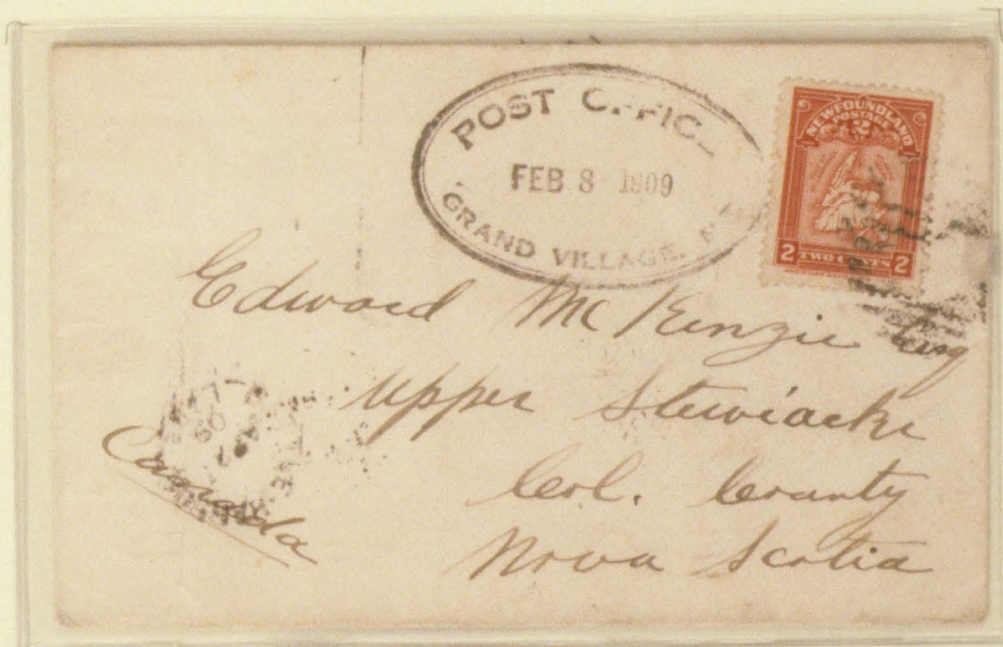 POST OFFIC
FEB 8 1909
GRAND VILLAGE.
NEWFOUNDLAND
POSTAGE
2
2 TWO CENTS 2
Edward McKenzie Esq
Upper Stewiacke
Col. County
Nova Scotia
Canada